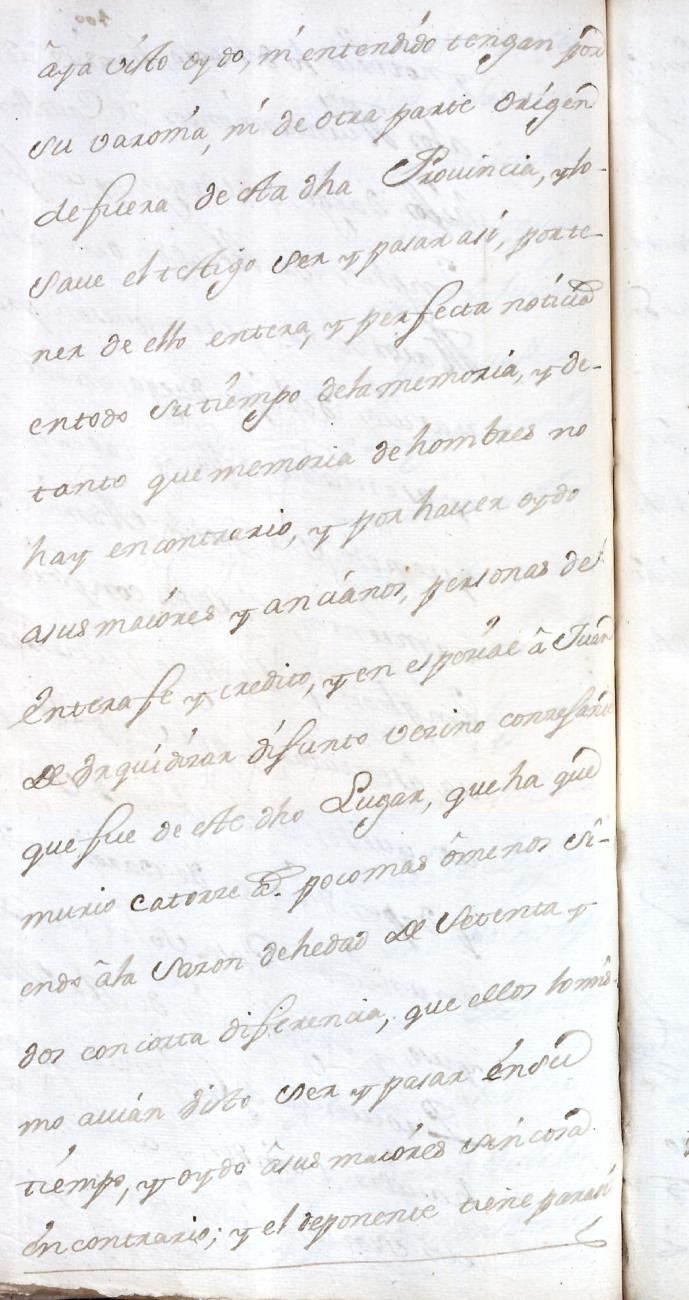 âya visto oydo, ni entendido tengan por
su varonia, ni de otra parte origen
defuera de esta dha Provincia, y lo-
save el testigo ser y pasar asi, porte-
ner de ello entera, y perfecta noticia
entodo su tiempo dela memoria, y de-
tanto que memoria de hombres no
hay encontrario, y por haver oydo
asus maiores y ancianos, personas de
entera fe y credito, y en espezial â Juan
de Irquidizar difunto vezino
que fue de este dho Lugar, que ha que
murio catorze a.s pocomas ômenos si-
endo âla sazon dehedad de setenta y
dos concorta diferencia, que ellos lomis-
mo avian visto ser y pasar ensu
tiempo, y oydo âsus maiores sincosa
encontrario; y el deponente tiene parasi